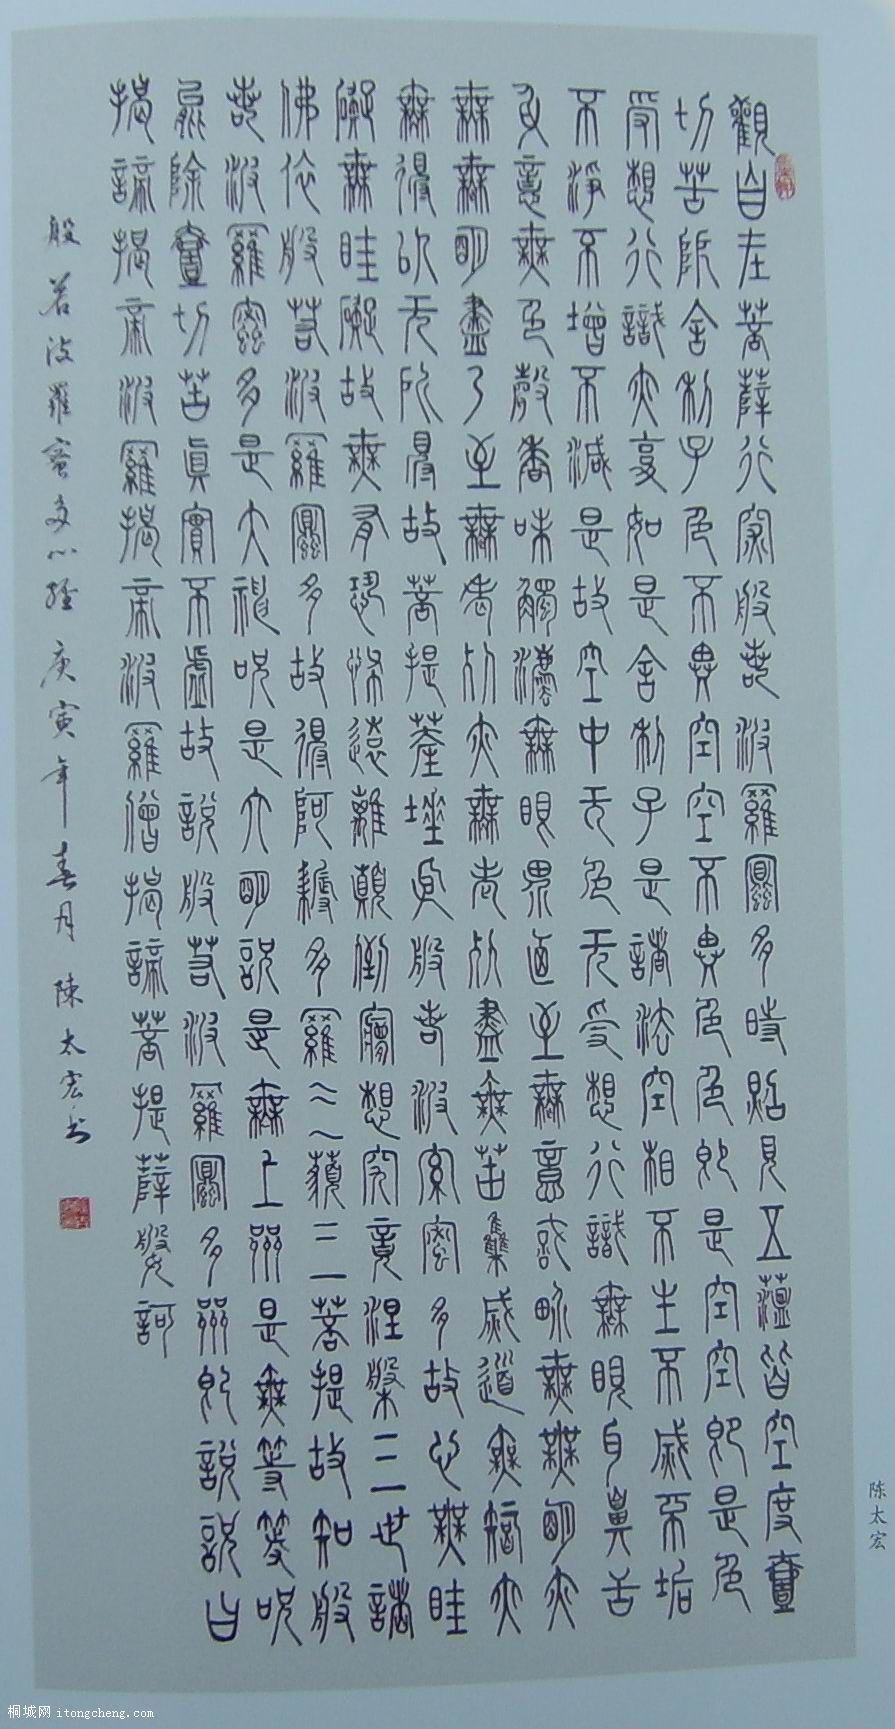 觀自在菩薩行深般若波羅蜜多時照見五蘊皆空度壹
切苦厄舍利子色不異空空不異色色即是空空即是色
受想行識亦復如是舍利子是諸法空相不生不滅不垢
不淨不增不減是故空中无色无受想行識無眼耳鼻舌
身意無色聲香味觸法無眼界乃至無意識界無無明亦
無無明盡乃至無老死亦無老死盡無苦集滅道無智亦
無得以无所得故菩提薩埵依般若波羅蜜多故心無罣
礙無罣礙故無有恐怖遠離顛倒夢想究竟涅槃三世諸
佛依般若波羅蜜多故得阿耨多羅三藐三菩提故知般
若波羅蜜多是大神咒是大明咒是無上咒是無等等咒
能除壹切苦真實不虛故說般若波羅蜜多咒即說咒曰
揭諦揭諦波羅揭諦波羅僧揭諦菩提薩婆訶
般若波羅蜜多心經 庚寅年春月 陳太宏书
陈太宏
桐城网 itongcheng.com